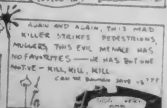 AGAIN AND AGAIN, THIS MAD
KILLER STRIKES PEDESTRIANS,
MUGGERS THIS EVIL MENACE HAS
NO FAVORITES — HE HAS BUT ONE
MOTIVE — KILL, KILL, KILL
CAN THE